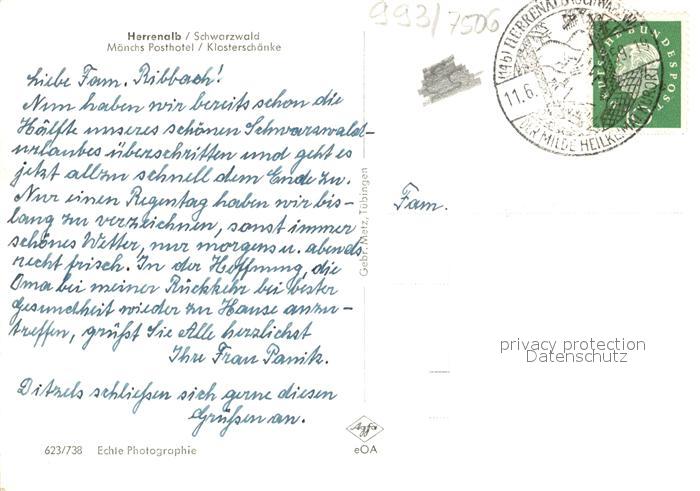 Herrenalb / Schwarzwald
Mönchs Posthotel / Klosterschänke
993/7506
Liebe Fam. Ribbach!
Nun haben wir bereits schon die
Hälfte unseres schönen Schwarzwald-
urlaubes überschritten und geht es
jetzt allzu schnell dem Ende zu.
Nur einen Regentag haben wir bis-
lang zu verzeichnen, sonst immer
schönes Wetter, nur morgens u. abends
recht frisch. In der Hoffnung, die
Oma bei meiner Rückkehr bei bester
Gesundheit wieder zu Hause anzu-
treffen, grüßt Sie Alle herzlichst
Ihre Frau Panitz.
Ditzels schließen sich gerne diesen
Grüßen an.
623/738 Echte Photographie
Gebr. Metz, Tübingen
Agfa
eOA
Fam.
HERRENALB
11.6.
DER MILDE HEILKLIMA KURORT
BUNDESPOST
privacy protection
Datenschutz